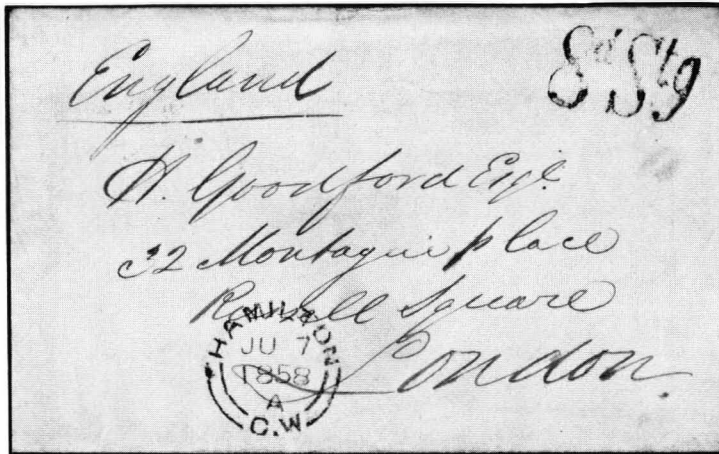 England
8d Stg
H. Goodford Esqe.
32 Montague place
Russell Square
London.
HAMILTON
JU 7
1858
A
C.W